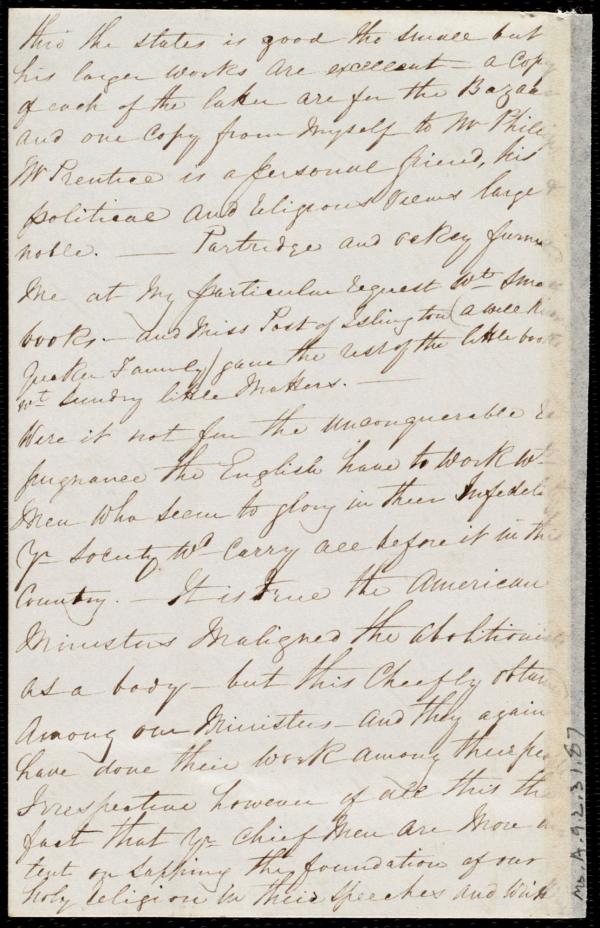 thro the states is good tho small but
his larger works are excellent – a Copy
of each of the latter are for the Bazaar
and one Copy from myself to Mr Philip
Mr Prentice is a personal friend, his
political and religious views large &
noble. — Partridge and Oakey furn
me at my particular request wth sma
books. – and Miss Post of Islington (a well kn
Quaker Family) gave the rest of the little books
wt sundry little Matters. —
Were it not for the unconquerable re
pugnance the English have to work wth
Men who seem to glory in their Infideli
yr Society wd carry all before it in this
Country. – It is true the American
Ministers Maligned the abolitionists
as a body – but this Cheefly obtain
among our Ministers – and they again
have done their work among their peo
Irrespective however of all this the
fact that yr chief Men are More in
tent on sapping the foundation of our
holy religion in their speeches and writ
Ms. A. 9.2.31.87